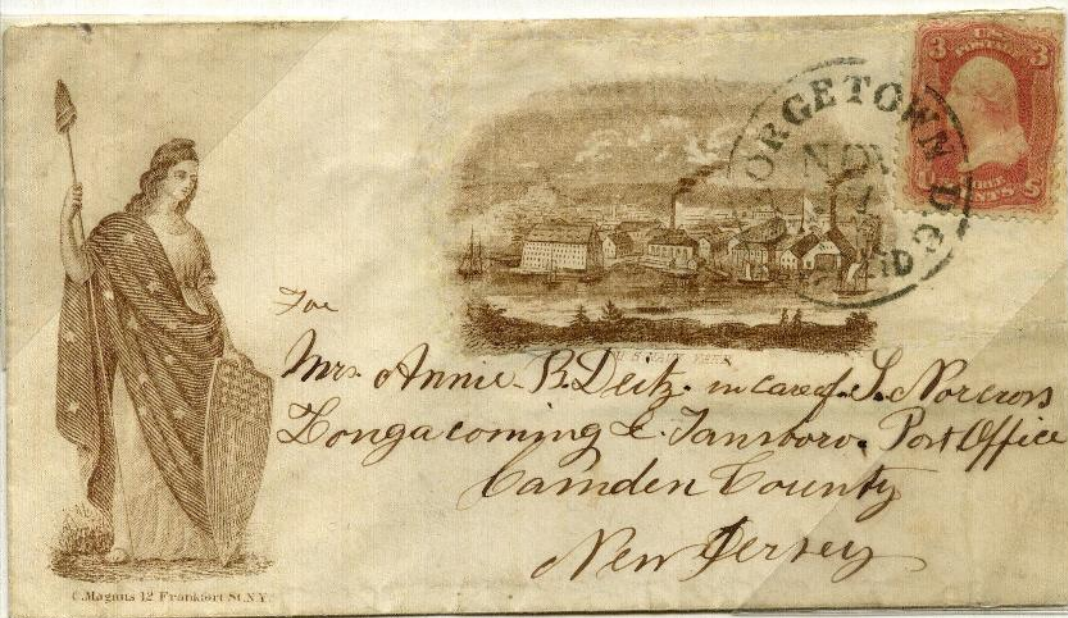 3 U.S. 3
POSTAGE
THREE
CENTS
GEORGETOWN D.C.
NOV
U S NAVY YARD
For
Mrs. Annie B. Deitz. in care of S. Norcross
Longacoming & Tansboro. Post Office
Camden County
New Jersey
C. Magnus 12 Frankfort St. N.Y.